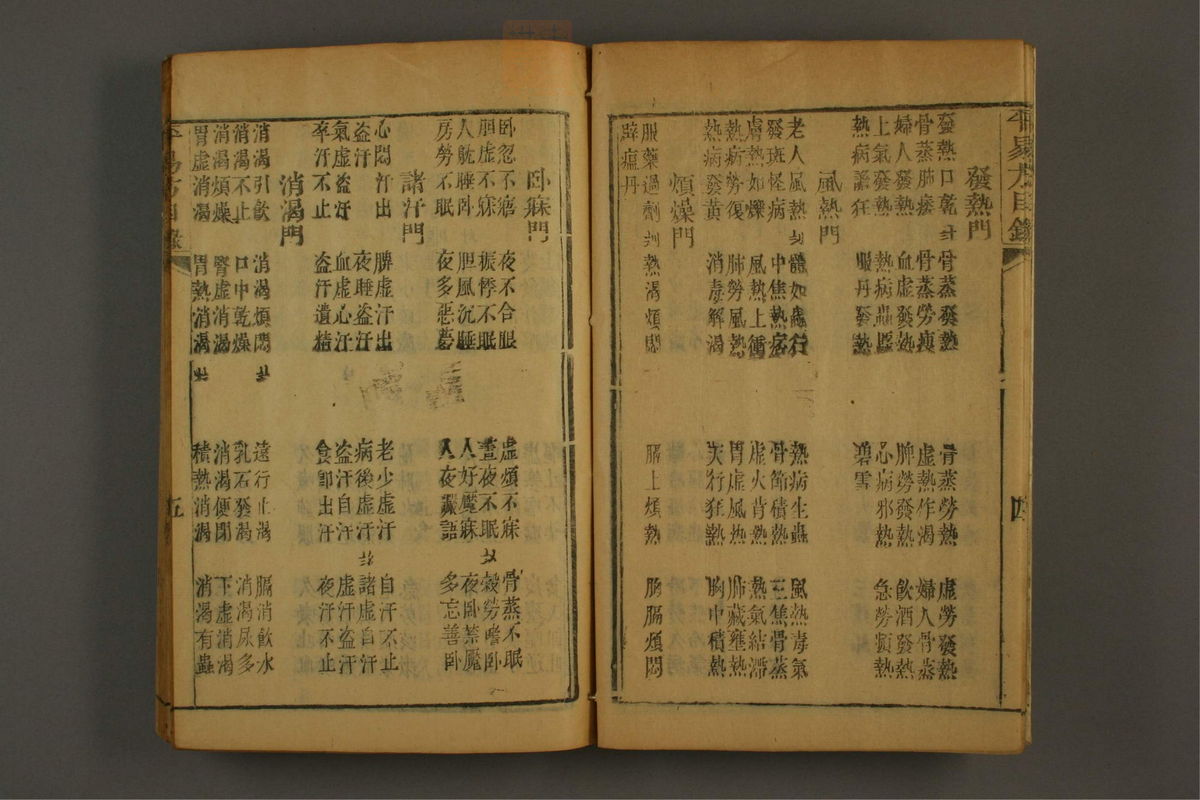 平易方目錄 四
發熱門
發熱口乾 骨蒸發熱 骨蒸勞熱 虛勞發熱
骨蒸肺痿 骨蒸勞瘦 虛熱作渴 婦人骨蒸
婦人發熱 血虛發熱 脾勞發熱 飲酒發熱
上氣發熱 熱病 心病邪熱 急勞煩熱
熱病狂 服丹發熱 碧雪
風熱門
老人風熱 體如蟲行 熱病生蟲 風熱毒氣
發斑怪病 中焦熱痞 骨節積熱 三焦骨蒸
膚熱如爍 風熱上衝 虛火背熱 熱氣結滯
熱病勞復 肺勞風熱 胃虛風熱 肺藏壅熱
熱病發黃 消毒解渴 天行狂熱 胸中積熱
煩燥門
服藥過劑 熱渴煩悶 膈上煩熱 胸膈煩悶
辟瘟丹
臥寐門
臥忽不寤 夜不合眼 虛煩不寐 骨蒸不眠
胆虛不寐 振悸不眠 晝夜不眠 穀勞嗜臥
人躭睡臥 胆風沉睡 人好魘寐 夜臥禁魘
房勞不眠 夜多惡夢 人夜讝語 多忘善臥
諸汗門
心悶汗出 脾虛汗出 老少虛汗 自汗不止
盜汗 夜睡盜汗 病後虛汗 諸虛自汗
氣虛盜汗 血虛心汗 盜汗自汗 虛汗盜汗
卒汗不止 盜汗遺精 食即出汗 夜汗不止
消渴門
消渴引飲 消渴煩悶 遠行止渴 膈消飲水
消渴不止 口中乾燥 乳石發渴 消渴尿多
消渴煩燥 腎虛消渴 消渴便閉 下虛消渴
胃虛消渴 胃熱消渴 積熱消渴 消渴有蟲
平易方目錄 五